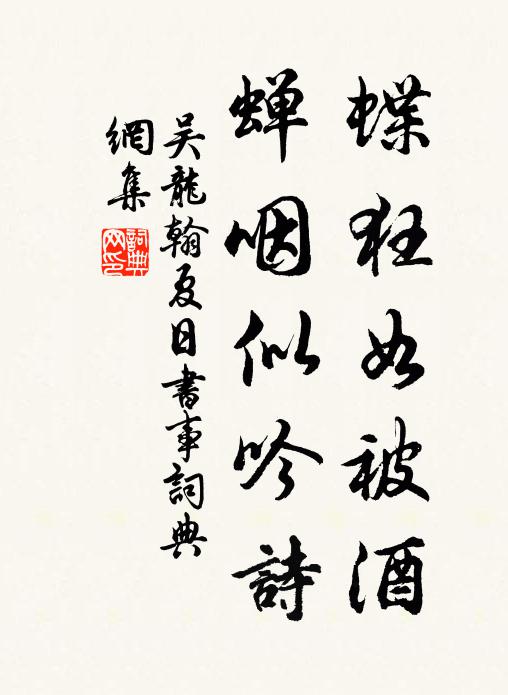 蝶狂如被酒
蝉咽似吟詩
吴龍翰夏日書事詞典
網集
詞典网印